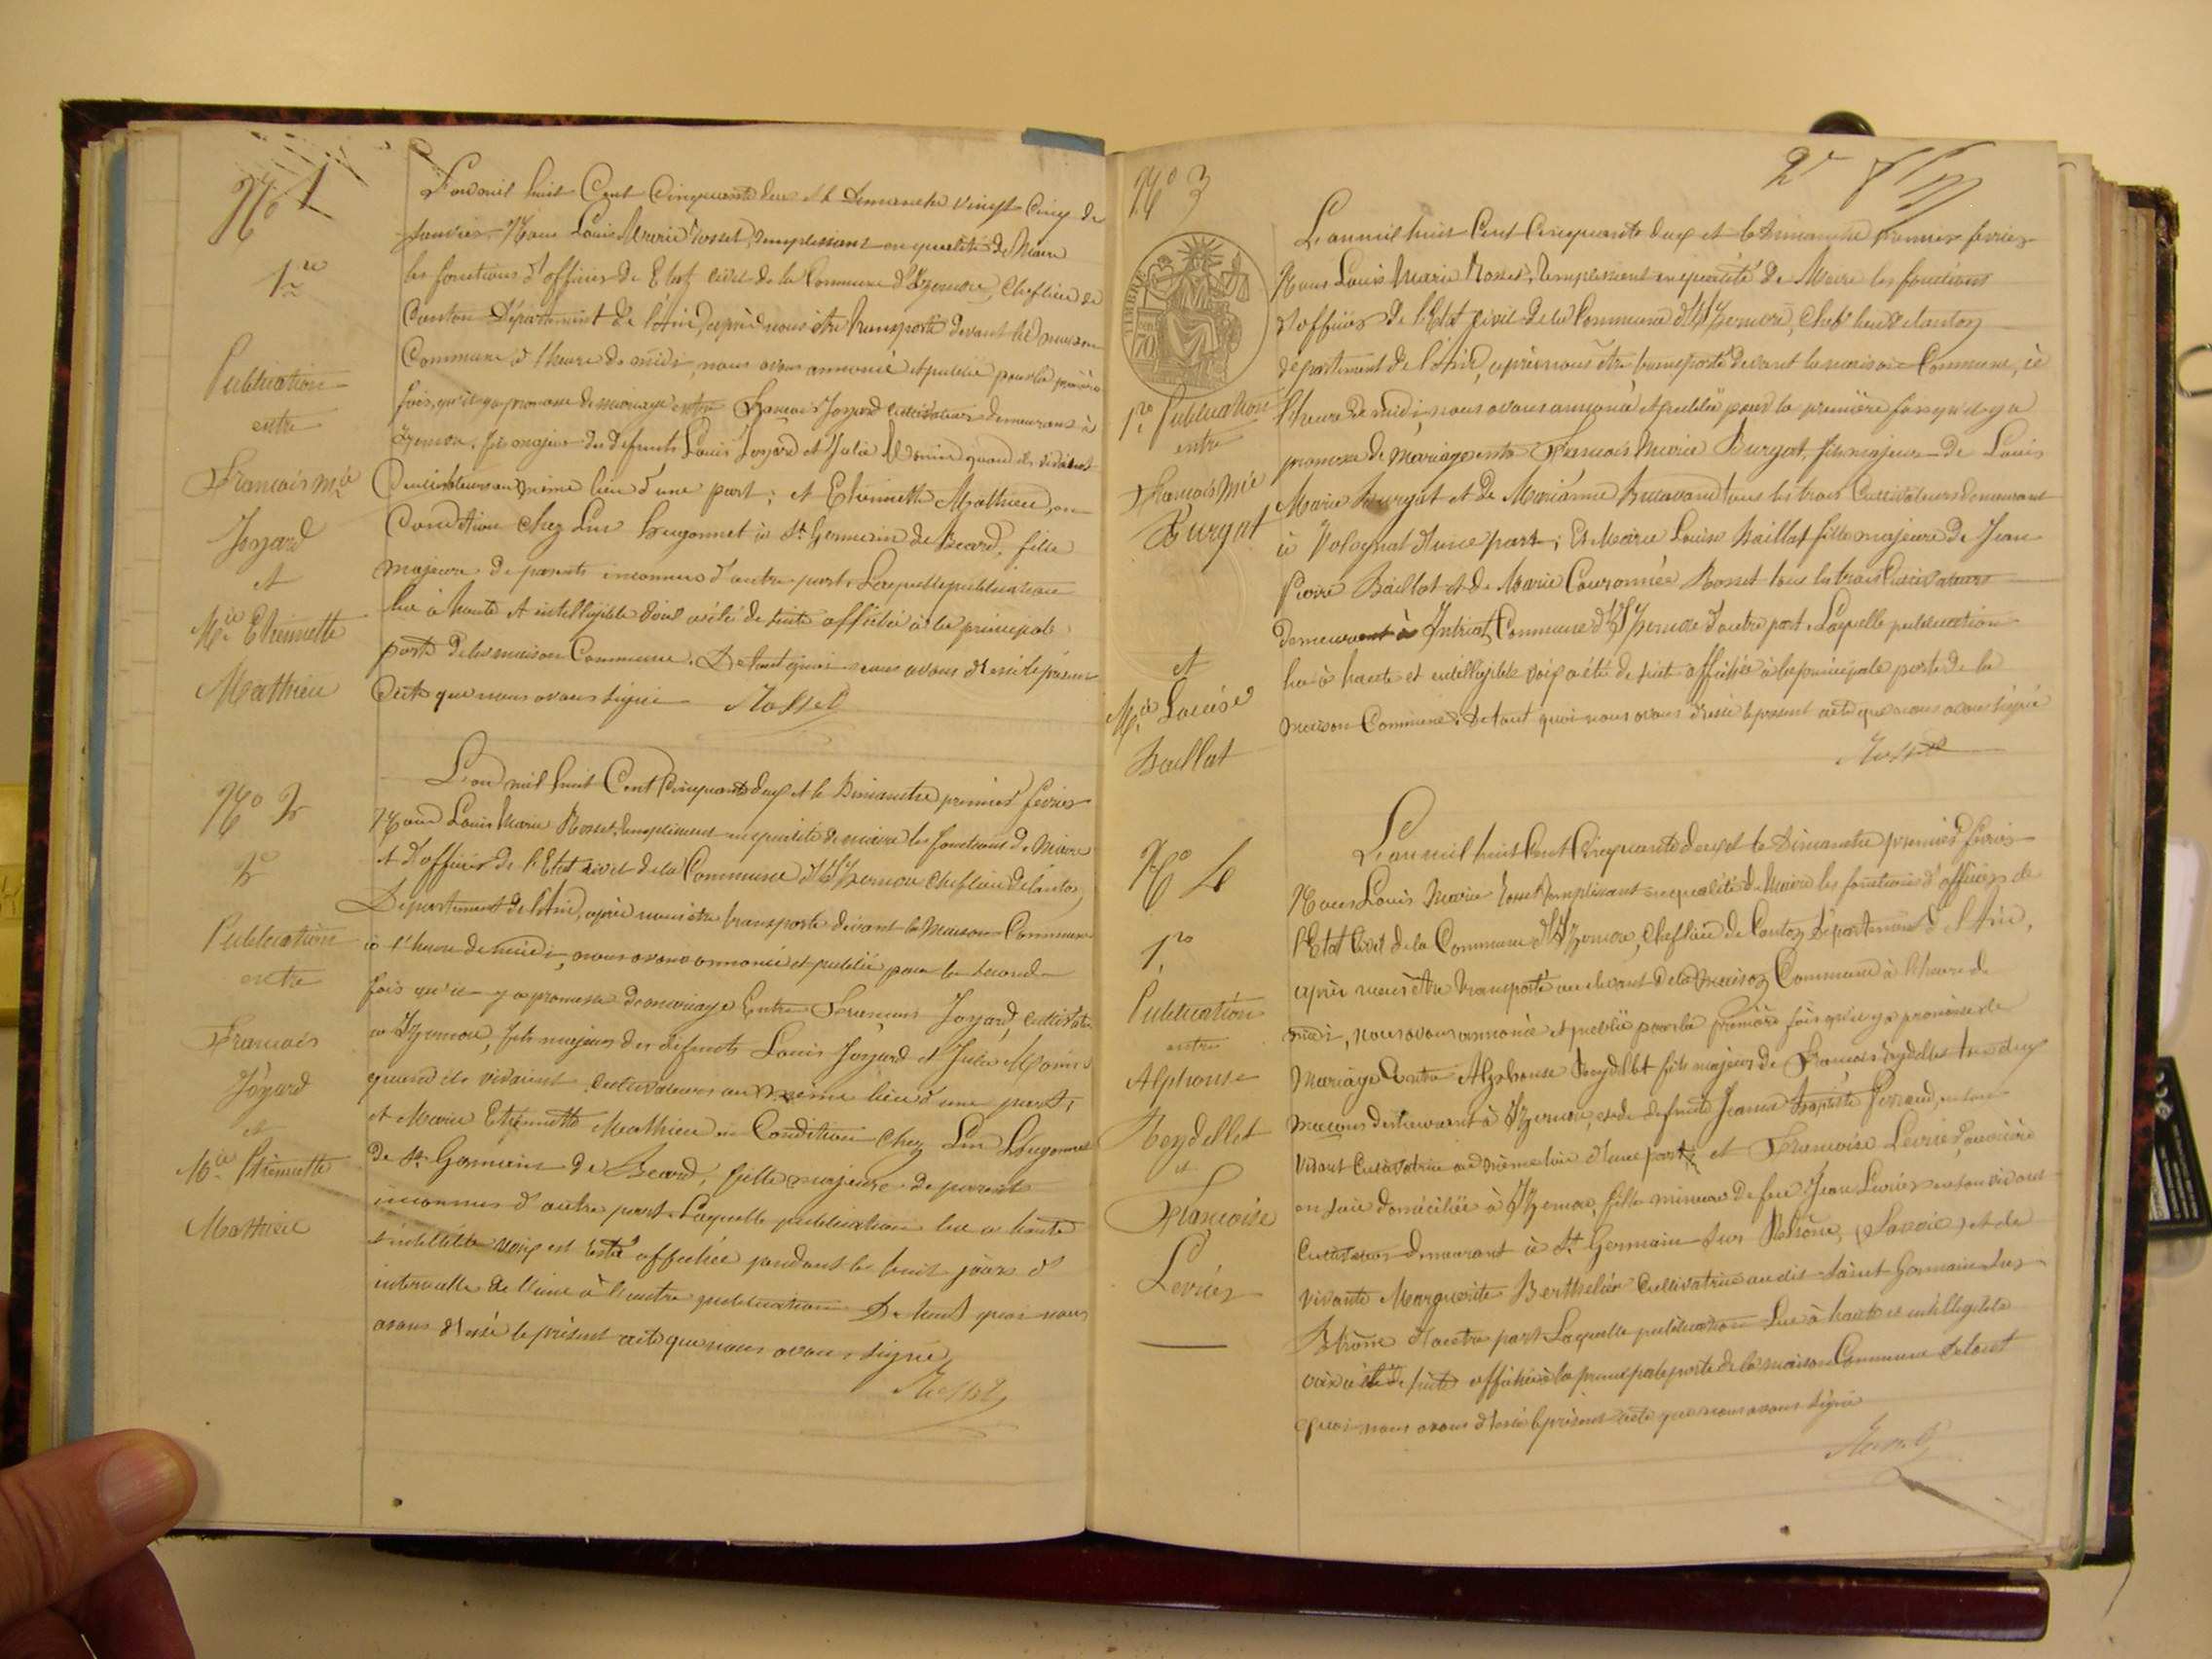 No 1
1re
Publication
entre
Francois Mie
Joyard
et
Mie Etiennette
Mathieu
L'an mil huit Cent Cinquante deux et le Dimanche vingt Cinq de
Janvier Nous Louis Marie Rosset, remplissant en qualité de Maire
les fonctions d'officier de Etat civil de la Commune d'Izernore, Chef lieu de
Canton Département de l'ain, après nous être transporté devant la maison
Commune à l'heure de midi, nous avons annoncé et publié pour la première
fois, qu'il y a promesse de mariage entre François Joyard cultivateur demeurant à
Izernore, fils majeur des defunts Louis Joyard et Julie quand ils vivaient
Cultivateurs au même lieu d'une part; et Etiennette Mathieu, en
Condition chez Luc Hugonnet à St Germain de Beard, fille
majeure de parents inconnus d'autre part. Laquelle publication
lue à haute et intelligible voix a été de suite affichée à la principale
porte de la maison Commune. De tout quoi nous avons dressé le présent
acte que nous avons signé Rosset
No 2
2e
Publication
entre
Francois
Joyard
et
Mie Etiennette
Mathieu
L'an mil huit Cent Cinquante deux et le Dimanche premier fevrier
Nous Louis Marie Rosset, remplissant en qualité de maire les fonctions de Maire
et d'officier de l'Etat civil de la Commune d'Izernore Chef lieu de Canton,
Département de l'Ain, après nous être transporté devant la Maison Commune
à l'heure de midi, nous avons annoncé et publié pour la seconde
fois qu'il y a promesse de mariage Entre François Joyard, cultivateur
à Izernore, fils majeur des defunts Louis Joyard et Julie
quand ils vivaient cultivateurs au même lieu d'une part;
et Marie Etiennette Mathieu en Condition chez Luc Hugonnet
de St Germain de Beard, fille majeure de parents
inconnus d'autre part. Laquelle publication lue a haute
intelligible voix est restée affichée pendant les huit jours d'
intervalle de l'une à l'autre publication De tout quoi nous
avons dressé le présent acte que nous avons signé
Rosset
2e
No 3
TIMBRE
70
1re Publication
entre
François Mie
Burgat
et
Mie Louise
Baillat
L'an mil huit Cent Cinquante deux et le Dimanche premier fevrier
Nous Louis Marie Rosset, remplissant en qualité de Maire les fonctions
d'officier de l'Etat Civil de la Commune d'Izernore, Chef lieu de Canton
département de l'Ain, après nous être transporté devant la maison Commune, à
l'heure de midi nous avons annoncé et publié pour la première fois qu'il y a
promesse de mariage entre François Marie Burgat, fils majeur de Louis
Marie Burgat et de Marianne tous les trois Cultivateurs demeurant
à Volognat d'une part; Et Marie Louise Baillat fille majeure de Jean
Pierre Baillat et de Marie Couronnée Rosset tous les trois Cultivateurs
demeurant à Intriat, Commune d'Izernore d'autre part. Laquelle publication
lue à haute et intelligible voix a été de suite affichée à la principale porte de la
maison Commune. De tout quoi nous avons dressé le présent acte que nous avons signé
Rosset
No 4
1re
Publication
entre
Alphonse
Reydellet
et
Françoise
Levrier
L'an mil huit Cent Cinquante deux et le Dimanche premier fevrier
Nous Louis Marie Rosset remplissant en qualité de Maire les fonctions d'officier de
l'Etat Civil de la Commune d'Izernore, Chef lieu de Canton Département de l'Ain,
après nous être transporté au devant de la Maison Commune à l'heure de
midi, nous avons annoncé et publié pour la première fois qu'il y a promesse de
Mariage Entre Alphonse Reydellet fils majeur de François Reydellet tous deux
Maçons demeurant à Izernore, et de defunte Jeanne Baptiste en son
vivant Cultivatrice au même lieu d'une part; et Françoise Levrier, ouvrière
en soie domiciliée à Izernore, fille mineure de feu Jean Levrier en son vivant
Cultivateur demeurant à St Germain sur Rhône, (Savoie) et de
vivante Marguerite Berthelier Cultivatrice au dit Saint Germain sur
Rhône d'autre part. Laquelle publication Lue à haute et intelligible
voix a été de suite affichée à la principale porte de la maison Commune De tout
quoi nous avons dressé le présent acte que nous avons signé
Rosset